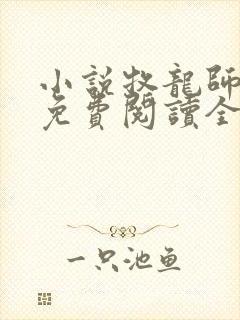 小説牧龍師
免費閱讀全
一只池鱼